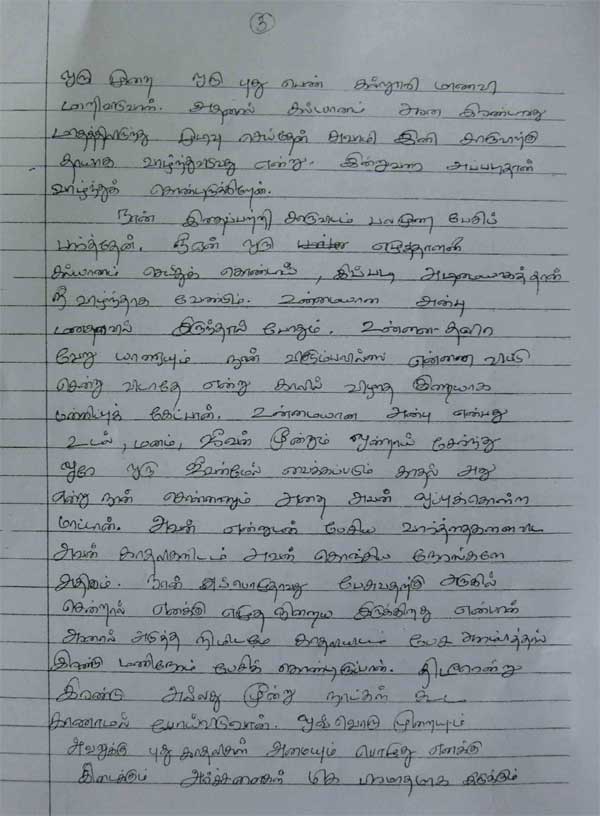 3
ஒரு முறை ஒரு புது பெண் கல்லூரி மாணவி
மாறிவிடுவாள். அதனால் கல்யாணம் ஆன இரண்டாவது
மாதத்திலிருந்து முடிவு செய்தேன்
தாயாக வாழ்ந்துவிடுவது என்று. இன்றுவரை அப்படிதான்
வாழ்ந்துக் கொண்டிருக்கிறேன்.
நான் இதைப்பற்றி அவரிடம் பலமுறை பேசிப்
பார்த்தேன். நீதான் ஒரு எழுத்தாளனை
கல்யாணம் செய்துக் கொண்டாய், இப்படி அடிமையாகத்தான்
நீ வாழ்ந்தாக வேண்டும். உண்மையான அன்பு
மனதளவில் இருந்தால் போதும். உன்னை தவிர
வேறு யாரையும் நான் விரும்பவில்லை என்னை விட்டு
சென்று விடாதே என்று காலில் விழாத குறையாக
மன்னிப்புக் கேட்பான். உண்மையான அன்பு என்பது
உடல், மனம், ஜீவன் மூன்றும் ஒன்றாய் சேர்ந்து
ஒரே ஒரு ஜீவன்மேல் வைக்கப்படும் காதல் அது
என்று நான் சொன்னாலும் அதை அவன் ஒப்புக்கொள்ள
மாட்டான். அவன் என்னுடன் பேசிய வார்த்தைகளைவிட
அவன் காதலிகளிடம் அவன் கொஞ்சிய நேரங்களே
அதிகம். நான் எப்பொழுதாவது பேசுவதற்கு அருகில்
சென்றால் எனக்கு எழுத நிறைய இருக்கிறது என்பான்
ஆனால் அடுத்த நிமிடமே காதலியிடம் பேச ஆரம்பித்தால்
இரண்டு மணிநேரம் பேசிக் கொண்டிருப்பான். திடீரென்று
இரண்டு அல்லது மூன்று நாட்கள் கூட
காணாமல் போய்விடுவான். ஒவ்வொரு முறையும்
அவனுக்கு புது காதலிகள் அமையும் பொழுது எனக்கு
கிடைக்கும் அர்ச்சனைகள் மிக பிரமாதமாக இருக்கும்